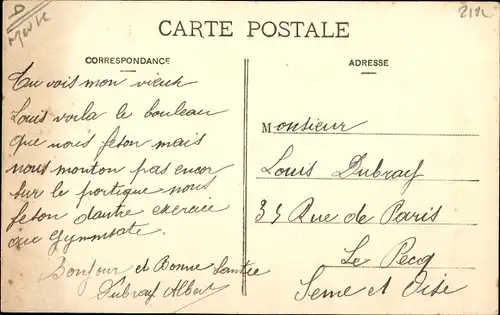 2121
CARTE POSTALE
CORRESPONDANCE
Tu vois mon vieux
Louis voila le bouleau
que nous feson mais
nous monton pas encor
sur le portique nous
feson dautre exercice
que Gymnsate.
Bonjour et Bonne Santee
Dubray Albert
ADRESSE
Monsieur
Louis Dubray
35 Rue de Paris
Le Pecq
Seine et Oise